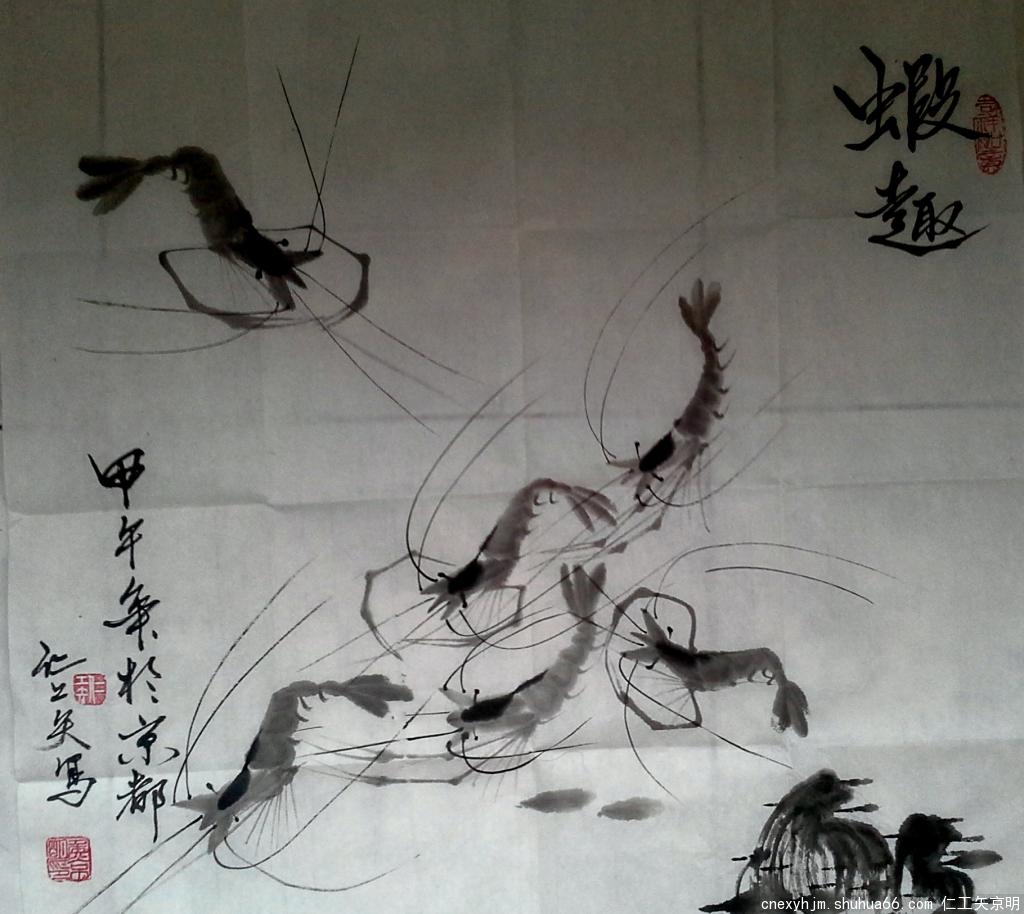 蝦趣
甲午年於京都
仁工矢寫
cnexyhjm.shuhua66.com 仁工矢京明